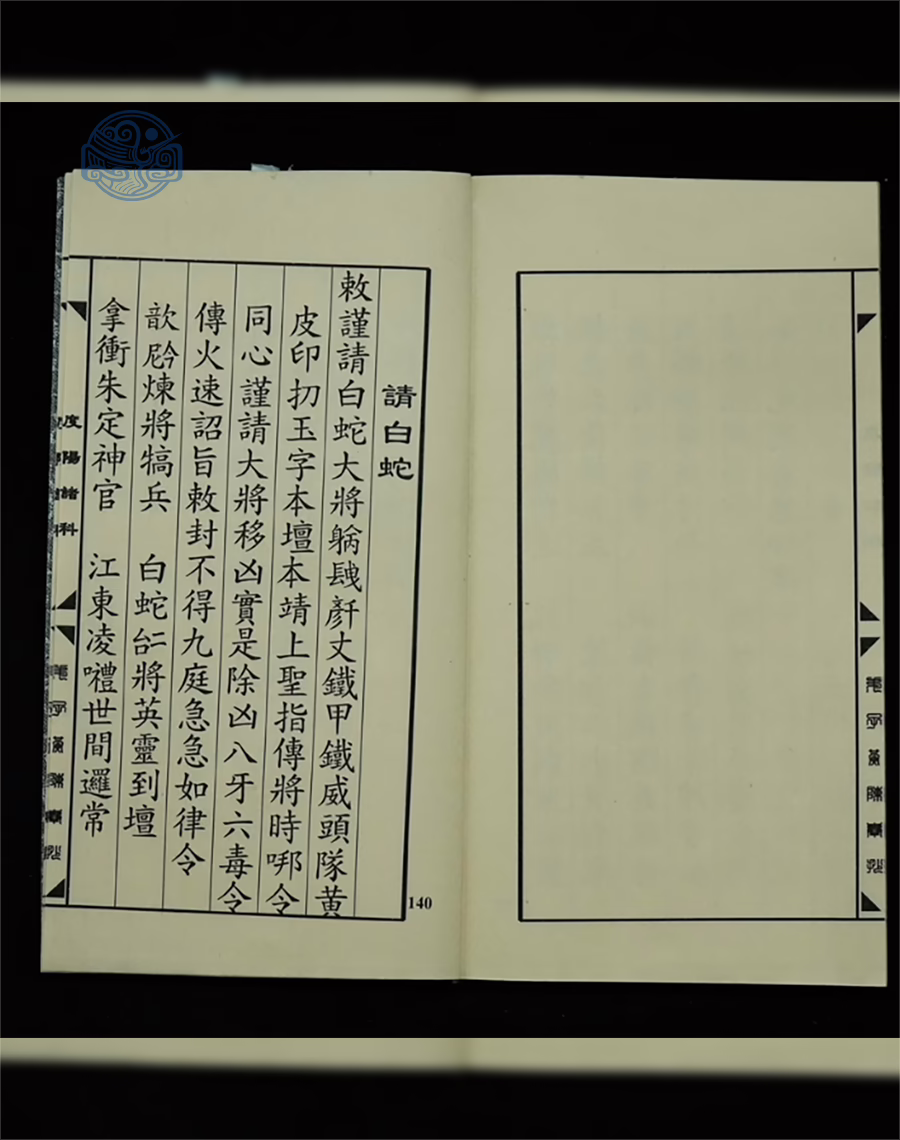 請白蛇
敕謹請白蛇大將躵睋彥丈鐵甲鐵威頭隊黃
皮印扨玉字本壇本靖上聖指傳將時哪令
同心謹請大將移凶實是除凶八牙六毒令
傳火速詔旨敕封不得九庭急急如律令
歆煉將犒兵　白蛇將英靈到壇
拿衝朱定神官　江東凌囄世間邏常
度陽諸科
140